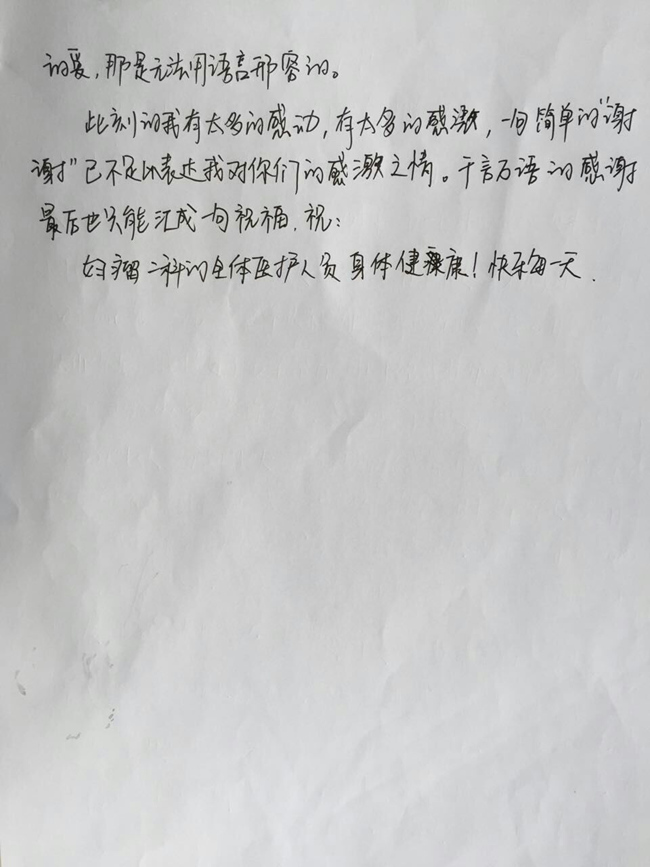 的爱,那是无法用语言形容的。
此刻的我有太多的感动,有太多的感激,一句简单的"谢
谢"已不足以表达我对你们的感激之情。千言万语的感谢
最后也只能汇成一句祝福,祝:
妇瘤二科的全体医护人员身体健康!快乐每一天.